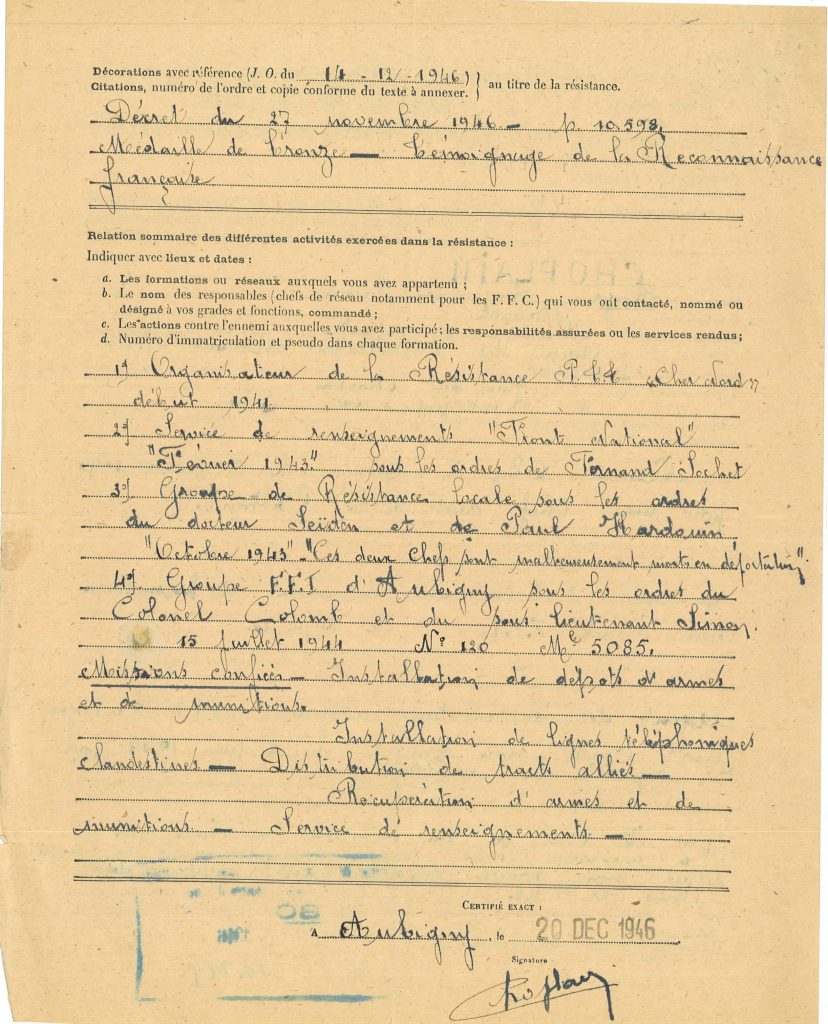 Décorations avec référence (J. O. du 14 - 12 - 1946)
Citations, numéro de l'ordre et copie conforme du texte à annexer. } au titre de la résistance.
Décret du 27 novembre 1946 — p. 10.598.
Médaille de bronze — témoignage de la Reconnaissance
française
Relation sommaire des différentes activités exercées dans la résistance :
Indiquer avec lieux et dates :
a. Les formations ou réseaux auxquels vous avez appartenu ;
b. Le nom des responsables (chefs de réseau notamment pour les F. F. C.) qui vous ont contacté, nommé ou
désigné à vos grades et fonctions, commandé ;
c. Les actions contre l'ennemi auxquelles vous avez participé ; les responsabilités assurées ou les services rendus ;
d. Numéro d'immatriculation et pseudo dans chaque formation.
1º) Organisateur de la Résistance P.t.t. «Cher Nord»
début 1941
2º) Service de renseignements "Front National"
"Février 1943" sous les ordres de Fernand Sochet
3º) Groupe de Résistance locale sous les ordres
du docteur et de Paul Hardouin
"Octobre 1943" - "Ces deux chefs sont malheureusement morts en déportation"
4º) Groupe F.F.I d'Aubigny sous les ordres du
Colonel Colomb et du sous lieutenant Simon.
15 juillet 1944 Nº 120 Mle 5085.
Missions confiées — Installation de dépôts d'armes
et de munitions.
Installation de lignes téléphoniques
clandestines — Distribution de tracts alliés —
Récupération d'armes et de
munitions — Service de renseignements —
CERTIFIÉ EXACT :
A Aubigny, le 20 DEC 1946
Signature
Choplain